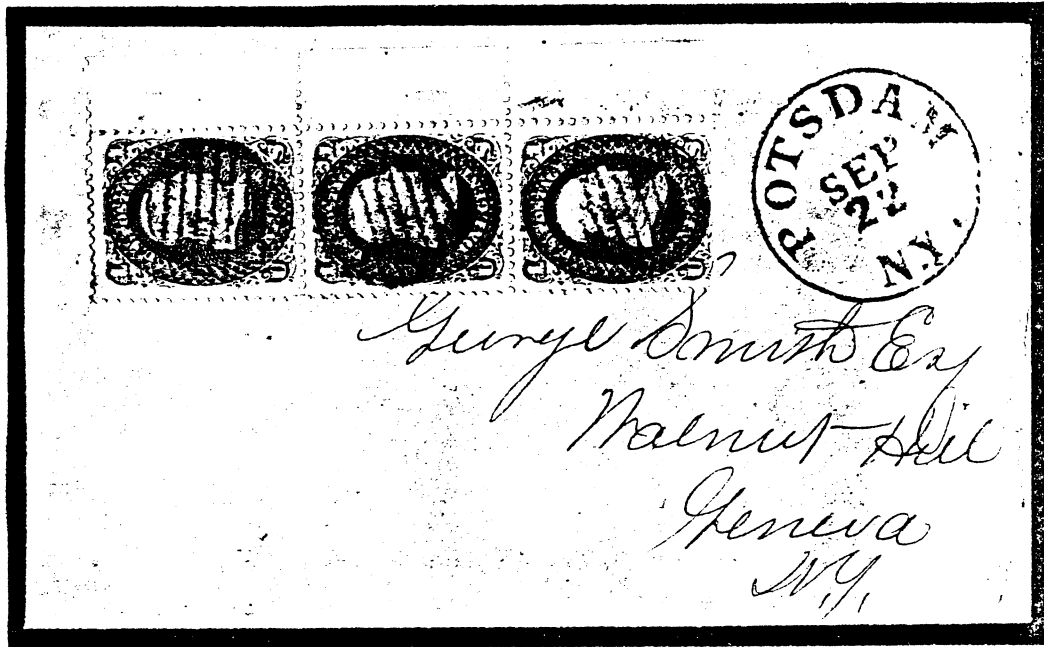 POTSDAM
SEP
22
N.Y.
George Smith Esq
Walnut Hill
Geneva
N.Y.